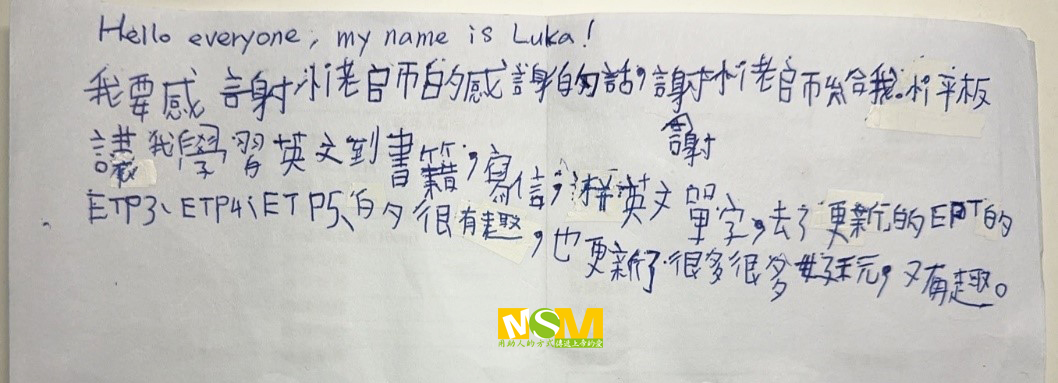 Hello everyone, my name is Luka!
我要感 謝小老師的感謝的話,謝小老師給我 平板
謝
讓我學習英文到書籍,寫信,拼英文單字,去了更新的EPT的
ETP3、ETP4、ETP5、的 很有趣,也更新了很多很多好玩,又有趣。
MSM
用助人的方式傳遞上帝的愛